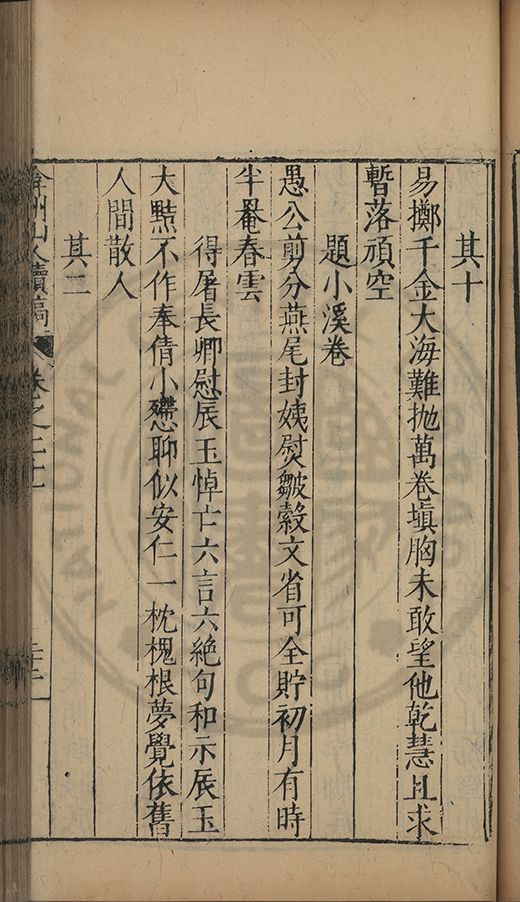 其十
易擲千金大海難拋萬卷塡胸未敢望他乾慧且求
暫落頑空
題小溪卷
愚公剪分燕尾封姨熨皺縠文省可全貯初月有時
半罨春雲
得屠長卿慰辰玉悼亡六言六絕句和示辰玉
大㸃不作奉倩小戀聊似安仁一枕槐根夢覺依舊
人間散人
其二
弇州山人續稿 卷之二十